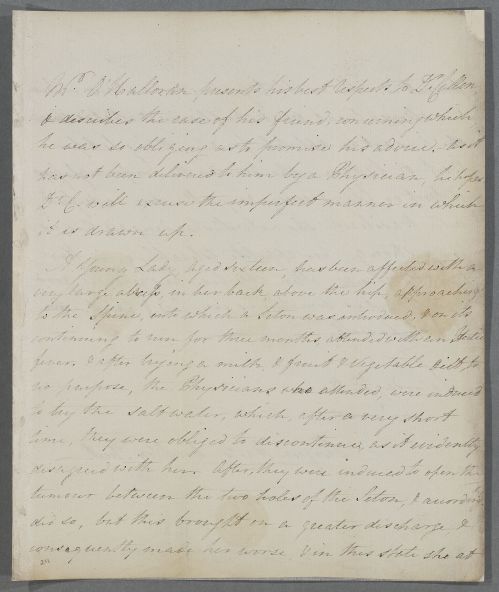 Mr. O'Halloran presents his best Respects to Dr. Cullen,
& describes the case of his friend, concerning which
he was so obliging as to promise his advice. as it
has not been delivered to him by a Physician, he hopes
Dr C. will excuse the imperfect manner in which
it is drawn up.
A Young Lady aged sixteen, has been affected with a
very large absess, in her back, above the hip, approaching
to the Spine, into which a Seton was introduced. & on its
continuing to run for three months, attended with an Hectic
fever, & after trying a milk, & fruit & vegetable diet, to
no purpose, the Physicians who attended, were induced
to try the salt water, which, after a very short
time, they were obliged to discontinue, as it evidently
disagreed with her. After, they were induced to open the
tumour between the two holes of the Seton, & according
did so, but this brought on a greater discharge &
consequently made her worse, & in this state she at